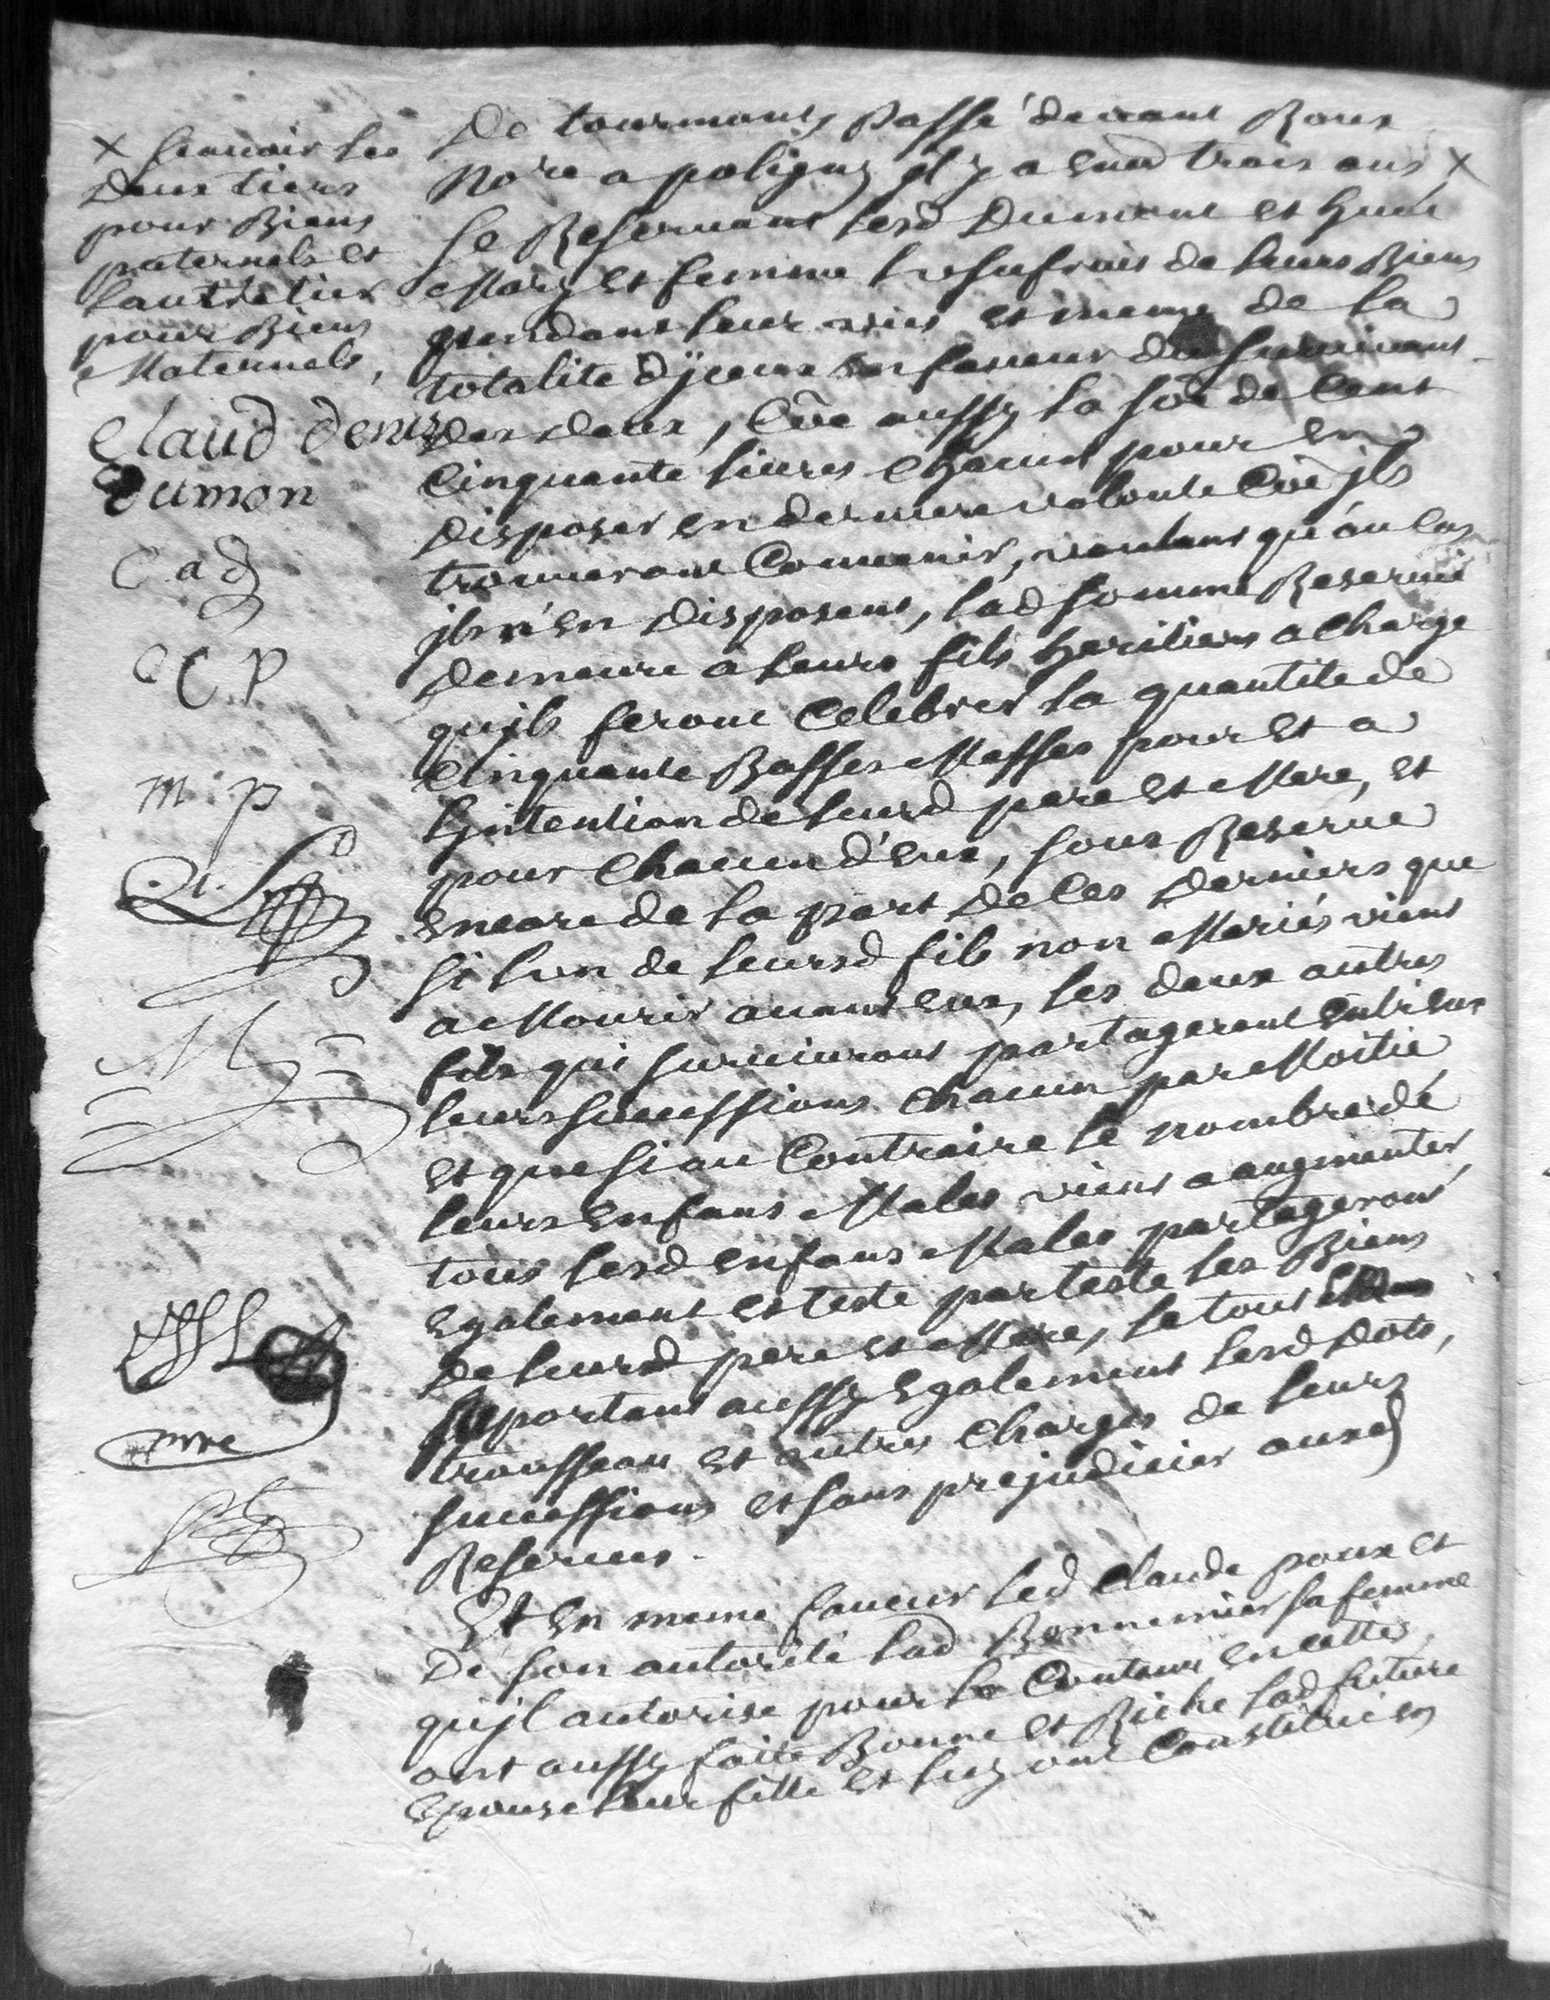 × scavoir les
deux tiers
pour Biens
paternels et
lautre tier
pour Biens
Maternels,
Claud denis
dumon
C a d
C C P
m : p
De tourmont, passé devant Roux
No're a poligny jl y a env trois ans ×
se Reservant lesd Dumont et
Mary et femme lusufruit de leurs Biens
pendant leur vies et meme de la
totalite d'jceux en faveur du survivant
des deux, Côe aussy la sôe de Cent
Cinquante livres Chacun pour en
disposer en derniere volonte Côe jls
trouveront Convenir, voulans qu'au cas
jls n'en disposent, lad somme Reservée
demeure a leurs fils heritiers a Charge
qu'jls feront Celebrer la quantite de
Cinquante Basses Messes pour et a
L'jntention de leursd pere et Mere, et
pour Chacun d'eux, sous Reserve
encore de la part de ces derniers que
si lun de leursd fils non Mariés vient
a Mourir avant eux, les deux autres
fils qui survivront partageront entr'eux
leurs successions Chacun par Moitie
et que si au Contraire le nombre de
leurs enfans Males vient a augmenter
tous lesd enfans Males partageront
egalement et teste par teste les Biens
de leursd pere et Mere, le tout
suportant aussy egalement lesd Dots,
trousseau et autres Charges de leurs
successions et sans prejudicier auxd
Reserves.
Et en meme faveur led Claude poux et
De son autorité lad Bonnemier sa femme
qu'jl autorise pour le Contenu en cette,
ont aussy faite Bonne et Riche lad future
epouse leur fille et luy ont Constitué en